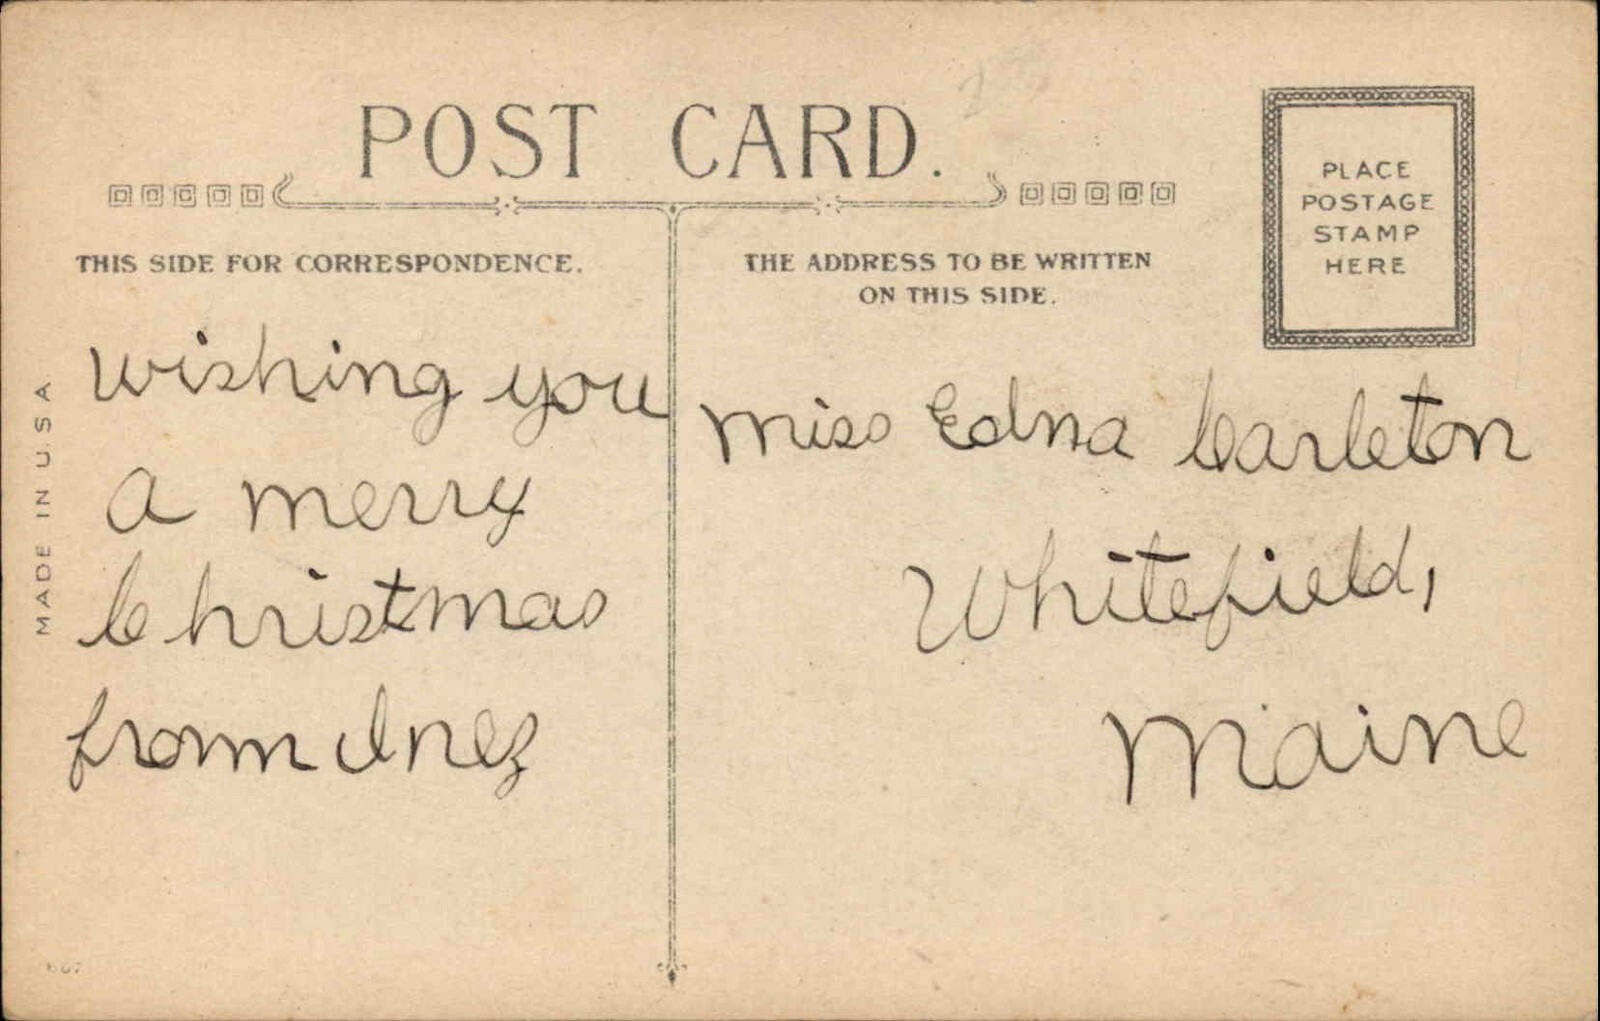 POST CARD.
THIS SIDE FOR CORRESPONDENCE.
THE ADDRESS TO BE WRITTEN
ON THIS SIDE.
PLACE
POSTAGE
STAMP
HERE
MADE IN U.S.A
wishing you
a merry
Christmas
from Inez
Miss Edna Carleton
Whitefield,
Maine